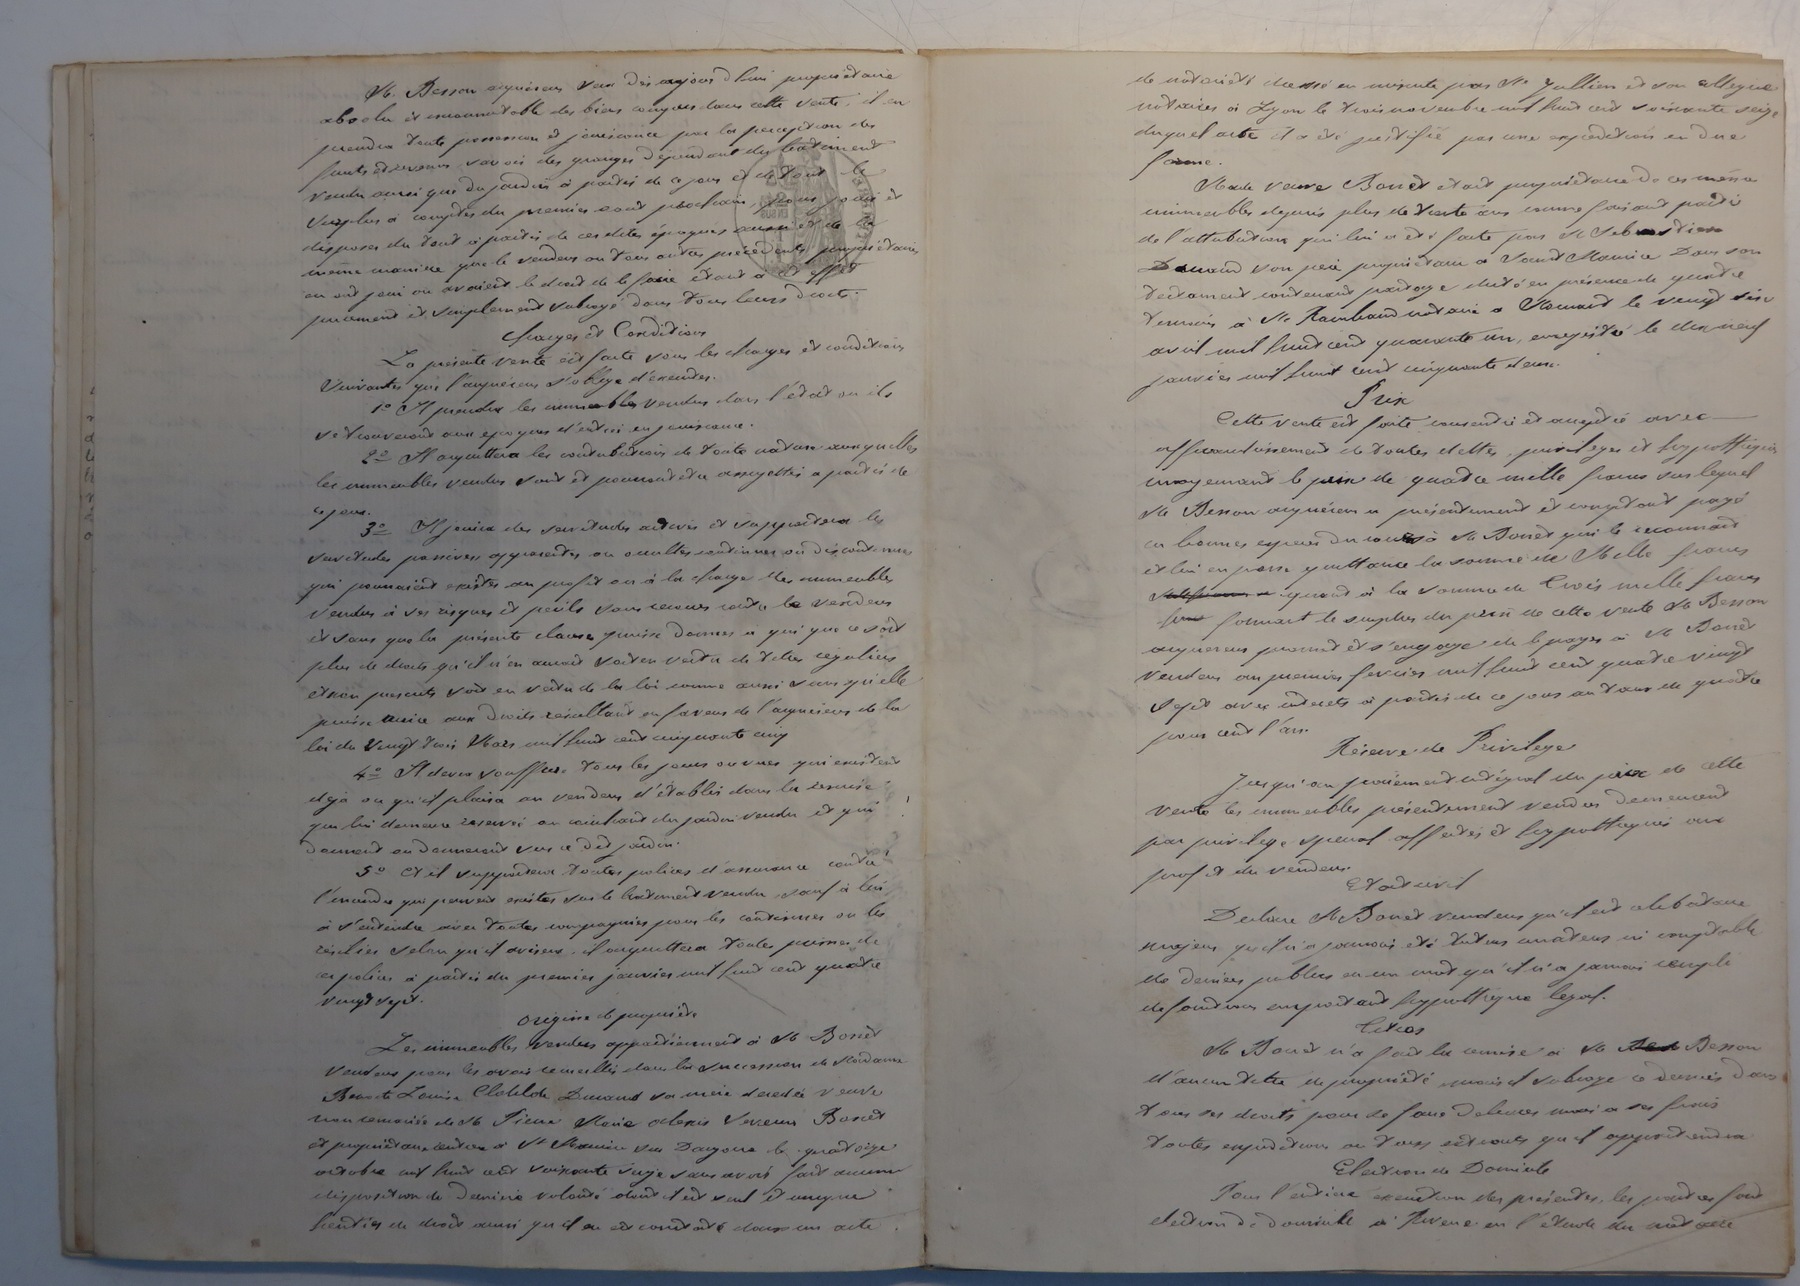 Mr. Besson acquéreur sera dès aujourd'hui propriétaire
absolu et incommutable des biens compris dans cette vente; il en
prendra toute possession et jouissance par la perception des
fruits et revenus savoir des granges dépendant du batiment
vendu ainsi que du jardin à partir de ce jour et de tout le
surplus à compter du premier aout prochain, pour jouir et
disposer du tout à partir de ces dites époques aussi et de la
même manière que le vendeur ou tous autres précédents propriétaires
en ont joui ou avaient le droit de le faire étant à cet effet
purement et simplement subrogé dans tous leurs droits.
Charges et Conditions
La présente vente est faite sous les charges et conditions
suivantes que l'acquéreur s'oblige d'exécuter.
1° Il prendra les immeubles vendus dans l'état où ils
se trouveront aux époques d'entrée en jouissance.
2° Il acquittera les contributions de toute nature auxquelles
les immeubles vendus sont et pourront être assujettis a partir de
ce jour.
3° Il jouira des servitudes actives et supportera les
servitudes passives apparentes ou occultes continues ou discontinues
qui pourraient exister au profit ou à la charge des immeubles
vendus à ses risques et périls sans recours contre le vendeur
et sans que la présente clause puisse donner à qui que ce soit
plus de droits qu'il n'en aurait soit en vertu de titres réguliers
et non prescrits soit en vertu de la loi comme aussi sans qu'elle
puisse nuire aux droits résultant en faveur de l'acquéreur de la
loi du vingt trois Mars mil huit cent cinquante cinq
4° Il devra souffrir tous les jours ouvertures qui existent
déjà ou qu'il plaira au vendeur d'établir dans la remise
que lui demeure réservée au couchant du jardin vendu et qui
donnent ou donneront sur ce dit jardin.
5° Et il supportera toutes polices d'assurance contre
l'incendie qui peuvent exister sur le batiment vendu sauf à lui
à s'entendre avec toutes compagnies pour les continuer ou les
résilier selon qu'il avisera, il acquittera toutes primes de
ces polices à partir du premier janvier mil huit cent quatre
vingt sept.
Origine de propriété
Les immeubles vendus appartiennent à Mr Bonet
vendeur pour les avoir recueillis dans la succession de Madame
Louise Clotilde Durand sa mère décédée veuve
non remariée de Mr Pierre Marie Alexis Bonet
et propriétaire rentière à St Maurice sur Dargoire le quatorze
octobre mil huit cent soixante seize sans avoir fait aucune
disposition de dernière volonté dont il est seul et unique
héritier de droit ainsi qu'il en est constaté dans un acte
de notoriété dressé en minute par Me Jullien et son collègue
notaires à Lyon le trois novembre mil huit cent soixante seize
duquel acte il a été justifié par une expédition en due
forme.
Made veuve Bonet était propriétaire de ces mêmes
immeubles depuis plus de trente ans comme faisant partie
de l'attribution qui lui a été faite par Mr Sebastien
Durand son père propriétaire à Saint Maurice dans son
testament contenant partage dicté en présence de quatre
témoins à Me Raimbaud notaire à Mornant le vingt six
avril mil huit cent quarante un, enregistré le dix neuf
janvier mil huit cent cinquante deux.
Prix
Cette vente est faite consentie et acceptée avec
affranchissement de toutes dettes, privilèges et hypothèques
moyennant le prix de quatre mille francs sur lequel
Mr Besson acquéreur a présentement et comptant payé
en bonnes espèces du cours à Mr Bonet qui le reconnait
et lui en passe quittance la somme de Mille francs
quant à la somme de trois mille francs
formant le surplus du prix de cette vente Mr Besson
acquéreur promet et s'engage de le payer à Mr Bonet
vendeur au premier fevrier mil huit cent quatre vingt
sept avec intérêts à partir de ce jour au taux de quatre
pour cent l'an.
Réserve de Privilège
Jusqu'au paiement intégral du prix de cette
vente les immeubles présentement vendus demeurent
par privilège spécial affectés et hypothéqués au
profit du vendeur.
Etat civil
Declare Mr Bonet vendeur qu'il est célibataire
majeur, qu'il n'a jamais été tuteur curateur ni comptable
de deniers publics en un mot qu'il n'a jamais rempli
de fonctions emportant hypothèque légale.
Titres
Mr Bonet n'a fait la remise à Mr Besson
d'aucun titre de propriété mais il subroge ce dernier dans
tous ses droits pour se faire délivrer mais a ses frais
toutes expéditions ou tous extraits qu'il appartiendra
Election de Domicile
Pour l'entière exécution des présentes, les parties font
election de domicile à en l'étude du notaire